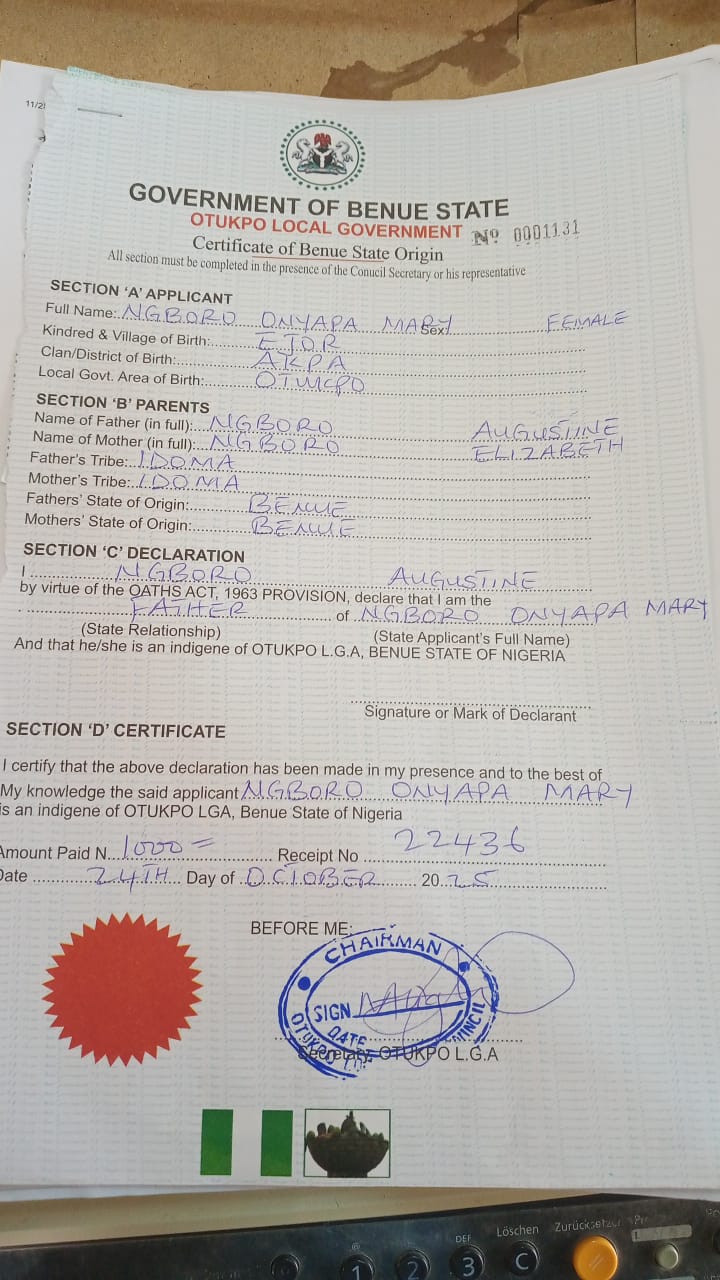 11/2
GOVERNMENT OF BENUE STATE
OTUKPO LOCAL GOVERNMENT
Nº 0001131
Certificate of Benue State Origin
All section must be completed in the presence of the Conucil Secretary or his representative
SECTION 'A' APPLICANT
Full Name: NGBORO ONYAPA MARY Sex: FEMALE
Kindred & Village of Birth: EJOR
Clan/District of Birth: AKPA
Local Govt. Area of Birth: OTUKPO
SECTION 'B' PARENTS
Name of Father (in full): NGBORO AUGUSTINE
Name of Mother (in full): NGBORO ELIZABETH
Father's Tribe: IDOMA
Mother's Tribe: IDOMA
Fathers' State of Origin: BENUE
Mothers' State of Origin: BENUE
SECTION 'C' DECLARATION
I NGBORO AUGUSTINE
by virtue of the OATHS ACT, 1963 PROVISION, declare that I am the
FATHER of NGBORO ONYAPA MARY
(State Relationship) (State Applicant's Full Name)
And that he/she is an indigene of OTUKPO L.G.A, BENUE STATE OF NIGERIA
Signature or Mark of Declarant
SECTION 'D' CERTIFICATE
I certify that the above declaration has been made in my presence and to the best of
My knowledge the said applicant NGBORO ONYAPA MARY
is an indigene of OTUKPO LGA, Benue State of Nigeria
Amount Paid N 1000= Receipt No 22436
Date 24TH Day of OCTOBER 2025
BEFORE ME:
CHAIRMAN
SIGN
DATE
Secretary, OTUKPO L.G.A
Löschen
DEF
1 2 3 C